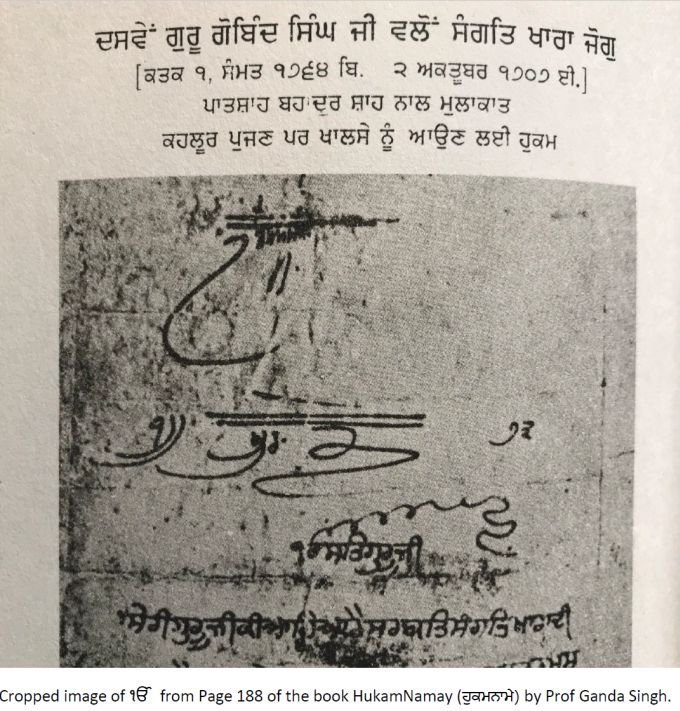 ਦਸਵੇਂ ਗੁਰੂ ਗੋਬਿੰਦ ਸਿੰਘ ਜੀ ਵਲੋਂ ਸੰਗਤਿ ਖਾਰਾ ਜੋਗੁ
[ਕਤਕ ੧, ਸੰਮਤ ੧੭੬੪ ਬਿ. ੨ ਅਕਤੂਬਰ ੧੭੦੭ ਈ.]
ਪਾਤਸ਼ਾਹ ਬਹਾਦੁਰ ਸ਼ਾਹ ਨਾਲ ਮੁਲਾਕਾਤ
ਕਹਲੂਰ ਪੁਜਣ ਪਰ ਖਾਲਸੇ ਨੂੰ ਆਉਣ ਲਈ ਹੁਕਮ
ੴ ਸਤਿਗੁਰੂਜੀ
ਸ੍ਰੀਗੁਰੂਜੀਕੀਆਗਿਆਹੈਸਰਬਤਿਸੰਗਤਿਖਾਰਾਦੀ
Cropped image of ੴ from Page 188 of the book HukamNamay (ਹੁਕਮਨਾਮੇ) by Prof Ganda Singh.